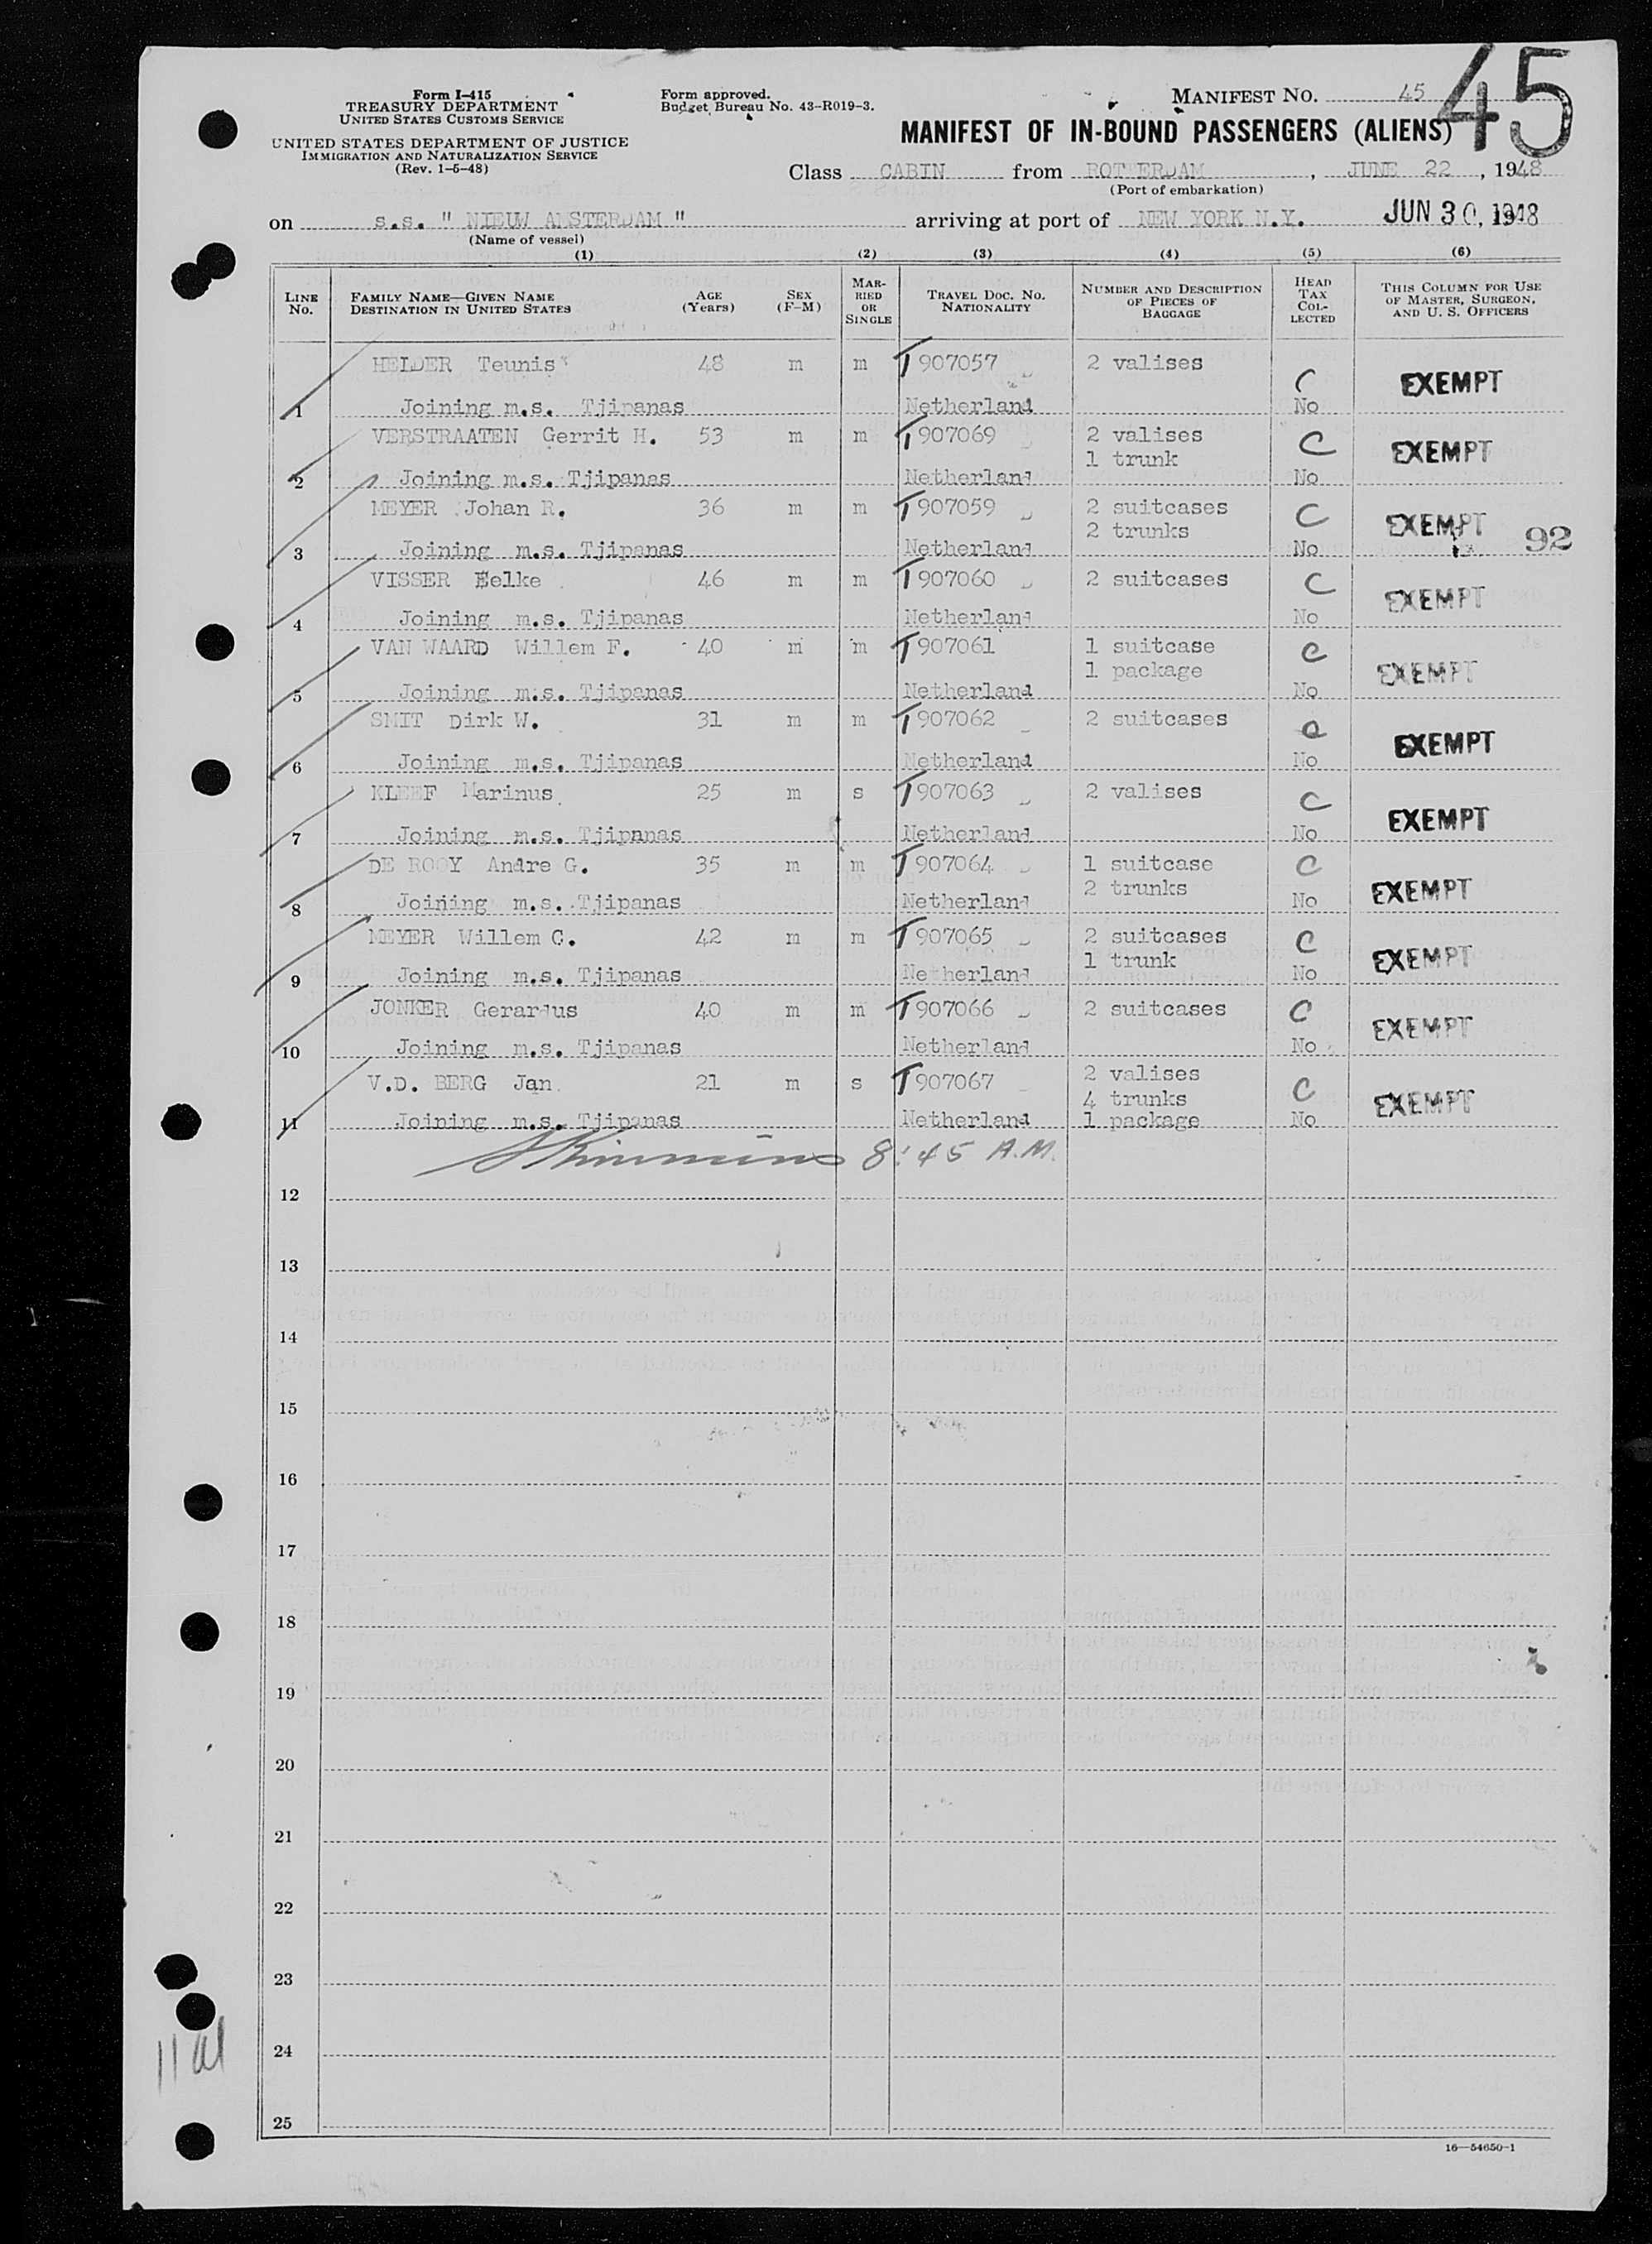 45
Form I-415
TREASURY DEPARTMENT
UNITED STATES CUSTOMS SERVICE
UNITED STATES DEPARTMENT OF JUSTICE
IMMIGRATION AND NATURALIZATION SERVICE
(Rev. 1-5-48)
Form approved.
Budget Bureau No. 43-R019-3.
MANIFEST NO. 45
MANIFEST OF IN-BOUND PASSENGERS (ALIENS)
Class CABIN from ROTTERDAM, JUNE 22, 1948
(Port of embarkation)
on s.s. " NIEUW AMSTERDAM " arriving at port of NEW YORK N.Y. JUN 30, 1948
(Name of vessel)
(1) (2) (3) (4) (5) (6)
LINE No. FAMILY NAME—GIVEN NAME DESTINATION IN UNITED STATES AGE (Years) SEX (F-M) MARRIED OR SINGLE TRAVEL DOC. NO. NATIONALITY NUMBER AND DESCRIPTION OF PIECES OF BAGGAGE HEAD TAX COLLECTED THIS COLUMN FOR USE OF MASTER, SURGEON, AND U. S. OFFICERS
HELDER Teunis 48 m m T 907057 2 valises C EXEMPT
1 Joining m.s. Tjipanas Netherland No
VERSTRAATEN Gerrit H. 53 m m T 907069 2 valises C EXEMPT
1 trunk
2 Joining m.s. Tjipanas Netherland No
MEYER Johan R. 36 m m T 907059 2 suitcases C EXEMPT
2 trunks 92
3 Joining m.s. Tjipanas Netherland No
VISSER Eelke 46 m m T 907060 2 suitcases C EXEMPT
4 Joining m.s. Tjipanas Netherland No
VAN WAARD Willem F. 40 m m T 907061 1 suitcase C EXEMPT
1 package
5 Joining m.s. Tjipanas Netherland No
SMIT Dirk W. 31 m m T 907062 2 suitcases C EXEMPT
6 Joining m.s. Tjipanas Netherland No
KLEEF Marinus 25 m s T 907063 2 valises C EXEMPT
7 Joining m.s. Tjipanas Netherland No
DE ROOY Andre G. 35 m m T 907064 1 suitcase C EXEMPT
2 trunks
8 Joining m.s. Tjipanas Netherland No
MEYER Willem C. 42 m m T 907065 2 suitcases C EXEMPT
1 trunk
9 Joining m.s. Tjipanas Netherland No
JONKER Gerardus 40 m m T 907066 2 suitcases C EXEMPT
10 Joining m.s. Tjipanas Netherland No
V.D. BERG Jan 21 m s T 907067 2 valises C EXEMPT
4 trunks
11 Joining m.s. Tjipanas Netherland 1 package No
8:45 A.M.
12
13
14
15
16
17
18
19
20
21
22
23
24
25
16-54650-1